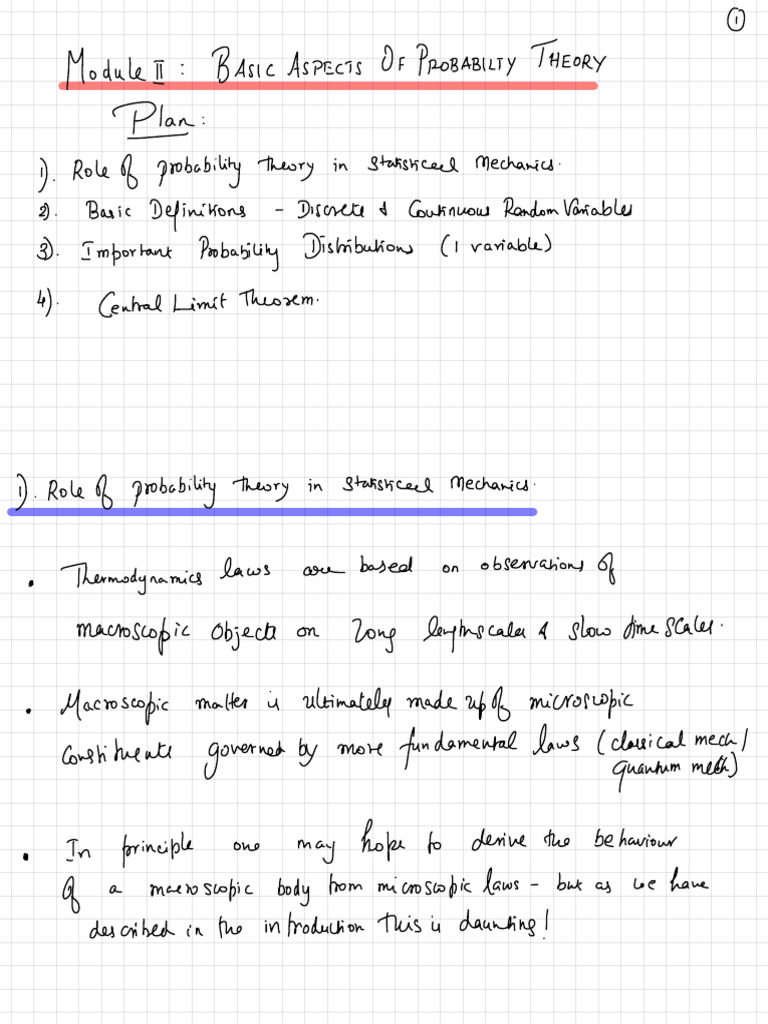 1
Module II : BASIC ASPECTS OF PROBABILTY THEORY
Plan :
1). Role of probability theory in Statistical Mechanics.
2). Basic Definitions - Discrete & Continuous Random Variables
3). Important Probability Distributions (1 variable)
4). Central Limit Theorem.
1). Role of probability theory in Statistical Mechanics.
• Thermodynamics laws are based on observations of
macroscopic objects on long lengthscales & slow time scales.
• Macroscopic matter is ultimately made up of microscopic
constituents governed by more fundamental laws (classical mech/
quantum mech)
• In principle one may hope to derive the behaviour
of a macroscopic body from microscopic laws - but as we have
described in the introduction this is daunting!